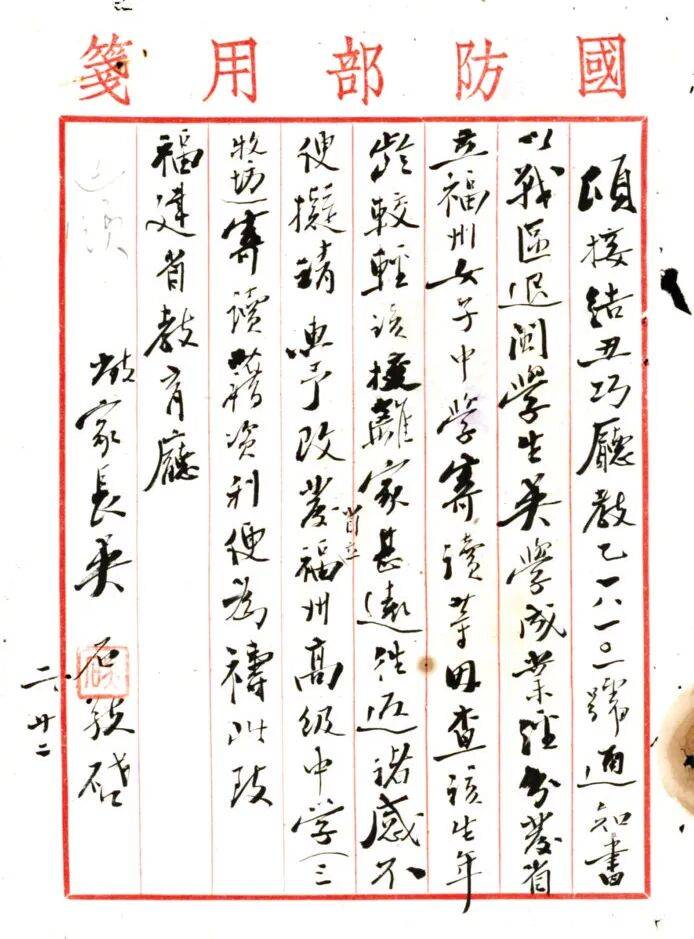 國防部用箋
頃接結丑巧廳教乙一八一〇號通知書
以戰區退閩學生吳學成業經分發省
立福州女子中學寄讀等因查該生年
齡較輕該校離家甚遠往返諸感不
便擬請惠予改發省立福州高級中学(三
牧坊)寄讀藉資利便為禱此致
福建省教育廳
家長吳石敬啟
二、廿二